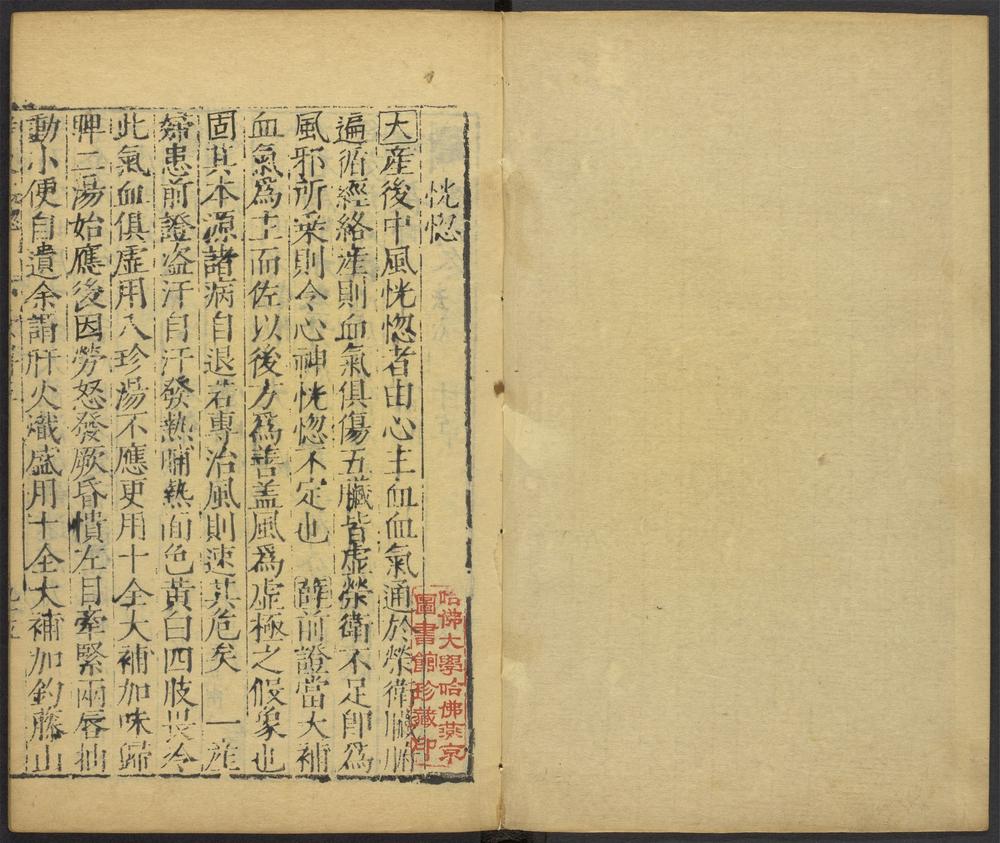 恍惚
大產後中風恍惚者由心主血血氣通於榮衛臟腑
遍循經絡産則血氣俱傷五臟皆虛榮衛不足卽爲
風邪所乘則令心神恍惚不定也 薛前證當大補
血氣爲主而佐以後方爲善盖風爲虛極之假象也
固其本源諸病自退若專治風則速其危矣 一産
婦患前證盗汗自汗發熱晡熱面色黃白四肢畏冷
此氣血俱虛用八珍湯不應更用十全大補加味歸
脾二湯始應後因勞怒發厥昏憒左目牽緊兩唇抽
動小便自遺余謂肝火熾盛用十全大補加釣藤山
哈佛大學哈佛燕京
圖書館珍藏印